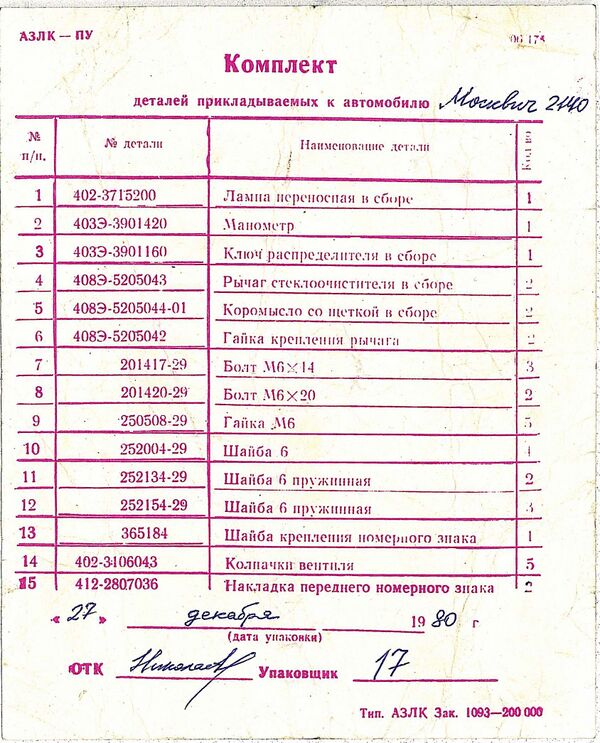 АЗЛК — ПУ
Комплект
деталей прикладываемых к автомобилю Москвич 2140
№ п/п. № детали Наименование детали Кол-во
1 402-3715200 Лампа переносная в сборе 1
2 403Э-3901420 Манометр 1
3 403Э-3901160 Ключ распределителя в сборе 1
4 408Э-5205043 Рычаг стеклоочистителя в сборе 2
5 408Э-5205044-01 Коромысло со щеткой в сборе 2
6 408Э-5205042 Гайка крепления рычага 2
7 201417-29 Болт М6×14 3
8 201420-29 Болт М6×20 2
9 250508-29 Гайка М6 5
10 252004-29 Шайба 6
11 252134-29 Шайба 6 пружинная 2
12 252154-29 Шайба 6 пружинная 3
13 365184 Шайба крепления номерного знака 1
14 402-3106043 Колпачки вентиля 5
15 412-2807036 Накладка переднего номерного знака 2
« 27 » декабря 19 80 г
(дата упаковки)
ОТК Упаковщик 17
Тип. АЗЛК Зак. 1093—200 000